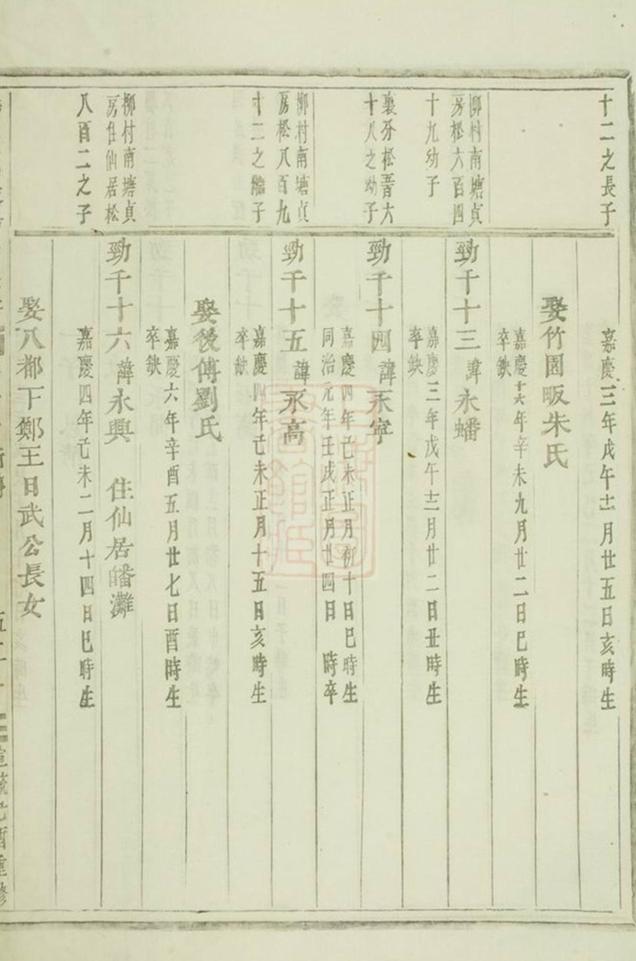 十二之長子
嘉慶三年戊午十二月廿五日亥時生
娶竹園畈朱氏
嘉慶十六年辛未九月廿二日巳時生
卒缺
柳村南塘貞
房松六百四
十九幼子
勁千十三 諱永蟠
嘉慶三年戊午十二月廿二日丑時生
卒缺
裏芬松晋六
十八之幼子
勁千十四 諱永寧
嘉慶四年己未正月初十日巳時生
同治元年壬戌正月廿四日 時卒
柳村南塘貞
房松八百九
十二之繼子
勁千十五 諱永高
嘉慶四年己未正月十五日亥時生
卒缺
娶後傅劉氏
嘉慶六年辛酉五月廿七日酉時生
卒缺
柳村南塘貞
房住仙居松
八百二之子
勁千十六 諱永興 住仙居皤灘
嘉慶四年己未二月十四日巳時生
娶八都下鄭王日武公長女